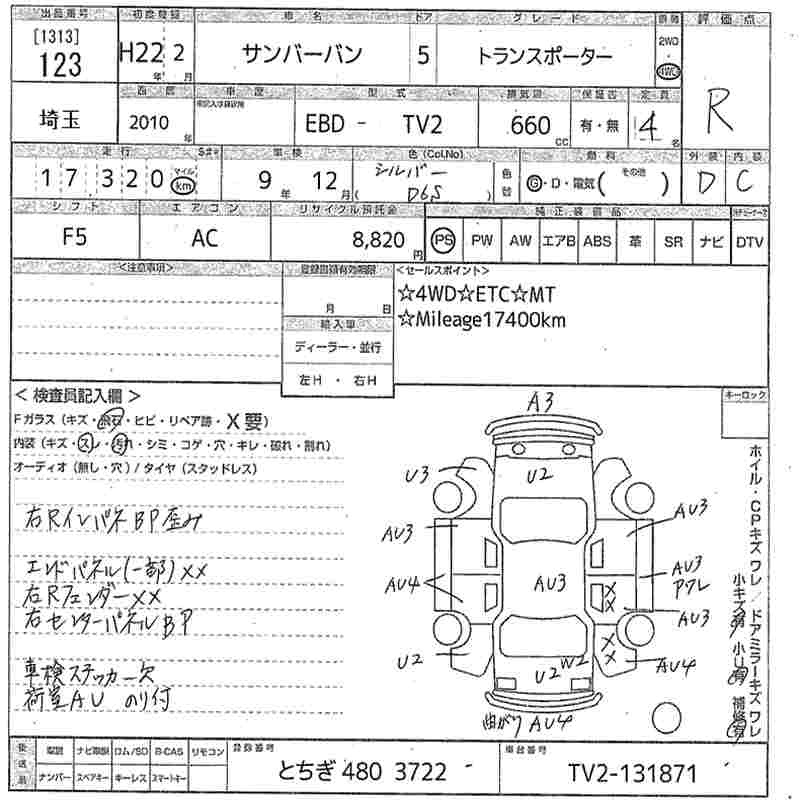 出品番号 初度登録 車名 ドア グレード 評価点
[1313]
123 H22 2 サンバーバン 5 トランスポーター 2WD 4WD R
年 月
西暦 車歴 型式 排気量 保証書 定員
埼玉 2010 年 EBD - TV2 660 cc 有・無 4 名
走行 車検 色(Col.No) 燃料 外装 内装
17 320 マイル km 9年 12月 シルバー D6S 色替 G・D・電気( その他 ) D C
シフト エアコン リサイクル預託金 純正装備品
F5 AC 8,820円 PS PW AW エアB ABS 革 SR ナビ DTV
<注意事項> 登録書類有効期限 <セールスポイント>
月 日
☆4WD☆ETC☆MT
☆Mileage17400km
輸入車
ディーラー・並行
左H ・ 右H
<検査員記入欄> キーロック
Fガラス(キズ・飛石・ヒビ・リペア跡・X要)
内装(キズ・スレ・汚れ・シミ・コゲ・穴・キレ・破れ・割れ)
オーディオ(無し・穴)/タイヤ(スタッドレス)
右Rインパネ BP歪み
エンドパネル(一部)XX
右Rフェンダー XX
右センターパネルBP
車検ステッカー欠
荷室AU のり付
A3
U2
U3
AU3
AU3
AU3
AU3
Pワレ
AU4
AU3
XX
XX
U2
U2
W2
AU4
曲がり AU4
ホイル・CPキズ ワレ/ドアミラーキズ ワレ
小キズ有 小U有 補修有
後送品 取説 ナビ取説 ロム/SD B-CAS リモコン 登録番号 車台番号
ナンバー スペアキー キーレス スマートキー とちぎ 480 3722 TV2-131871